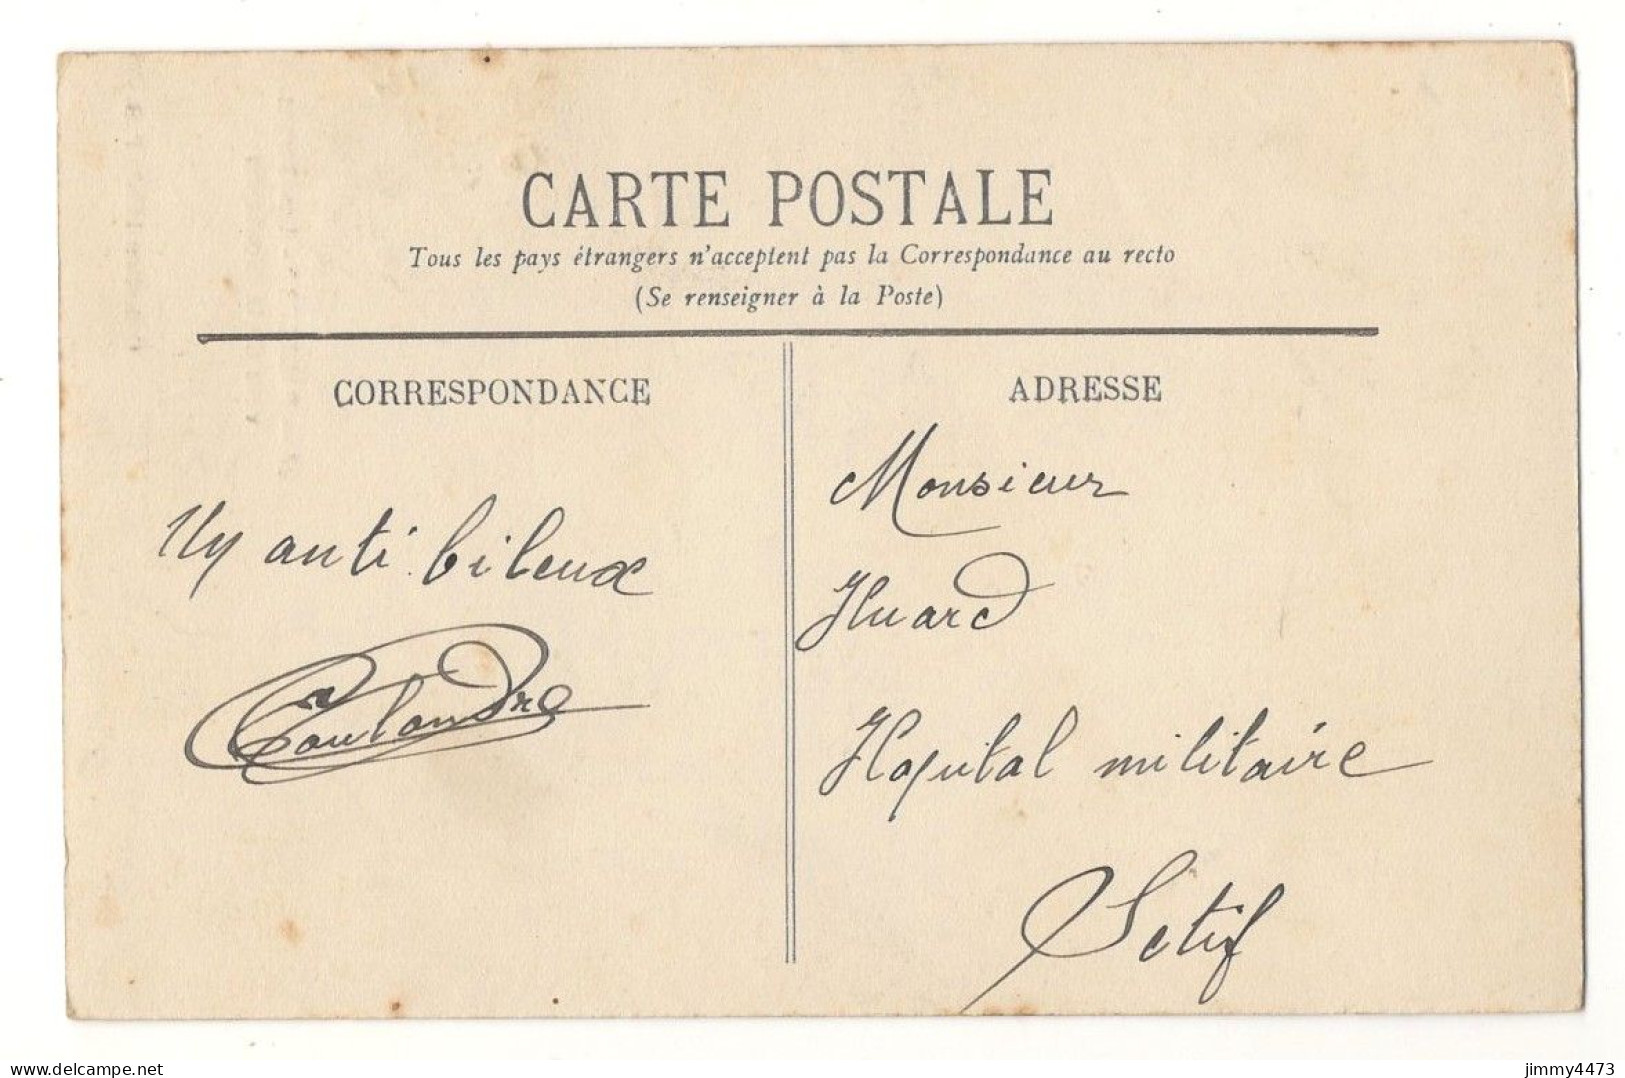 CARTE POSTALE
Tous les pays étrangers n'acceptent pas la Correspondance au recto
(Se renseigner à la Poste)
CORRESPONDANCE
anti bileux
ADRESSE
Monsieur
Huard
Hopital militaire
Setif
jimmy4473